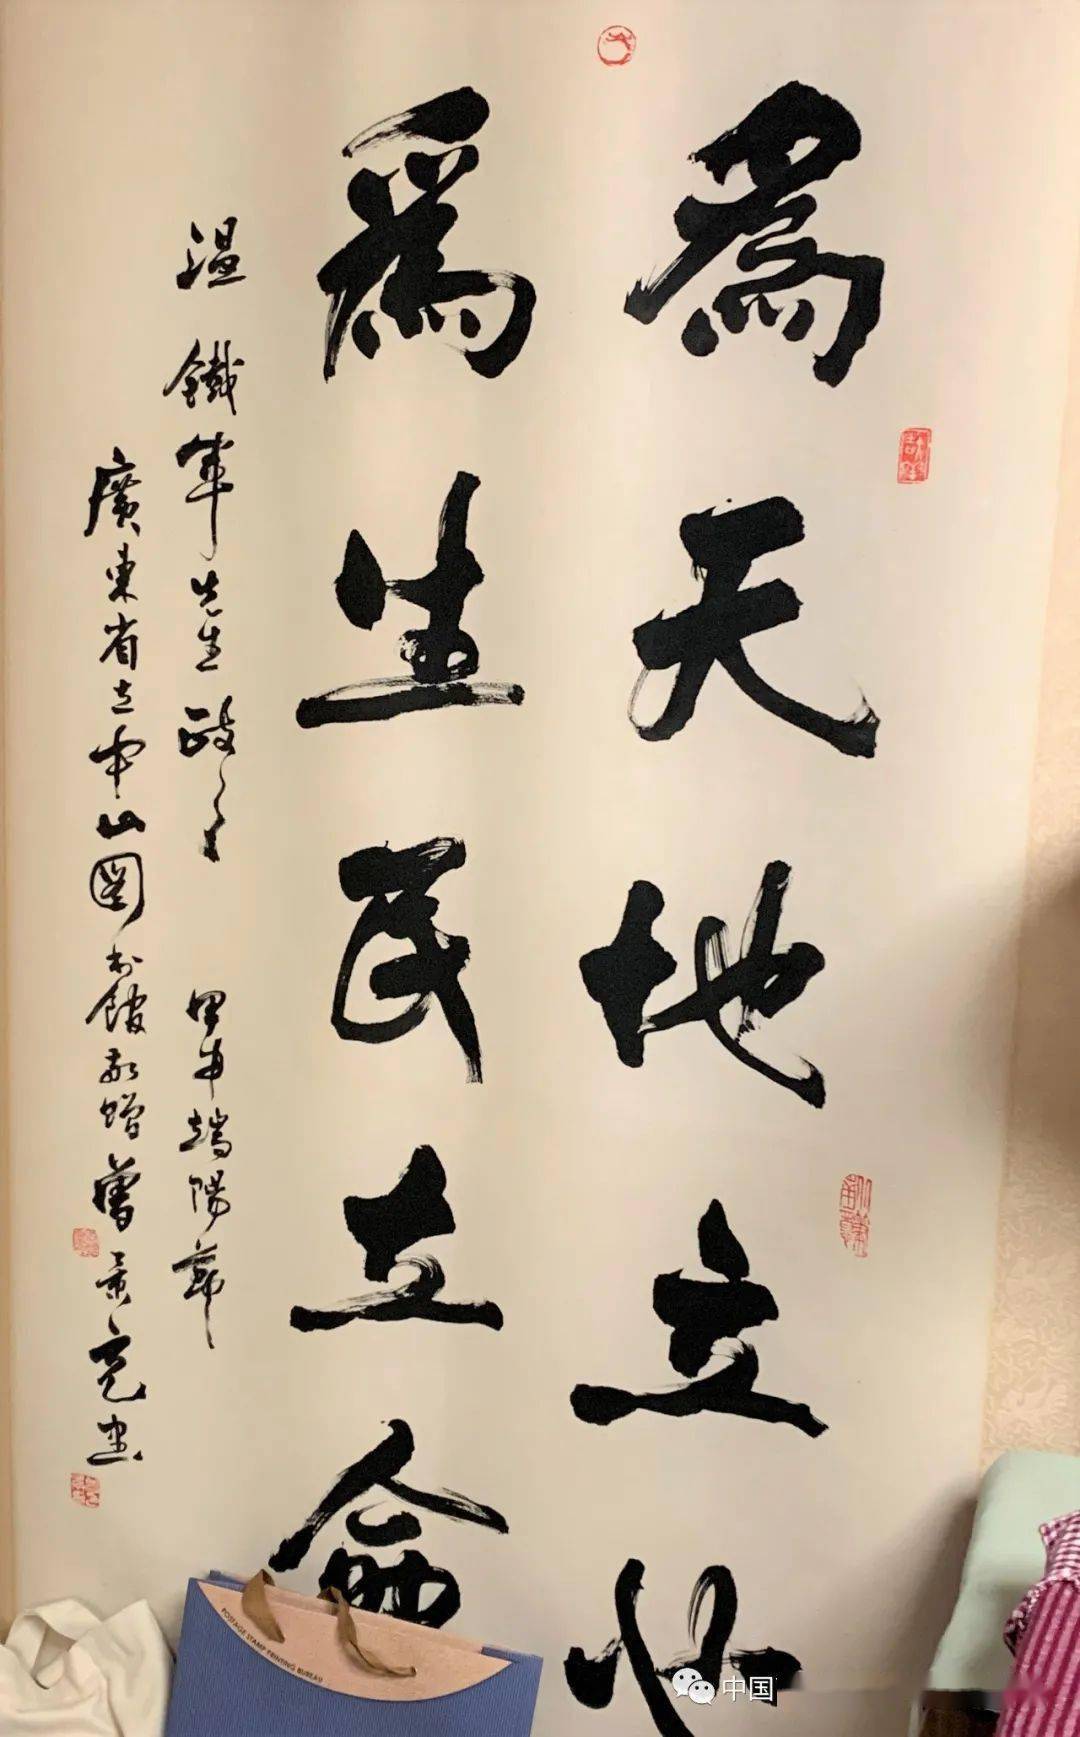 爲天地立心
爲生民立命
温鐵軍先生政之 甲申端陽節
廣東省立中山圖书館敬贈 曾景充书
POSTAGE STAMP PRINTING BUREAU
中国